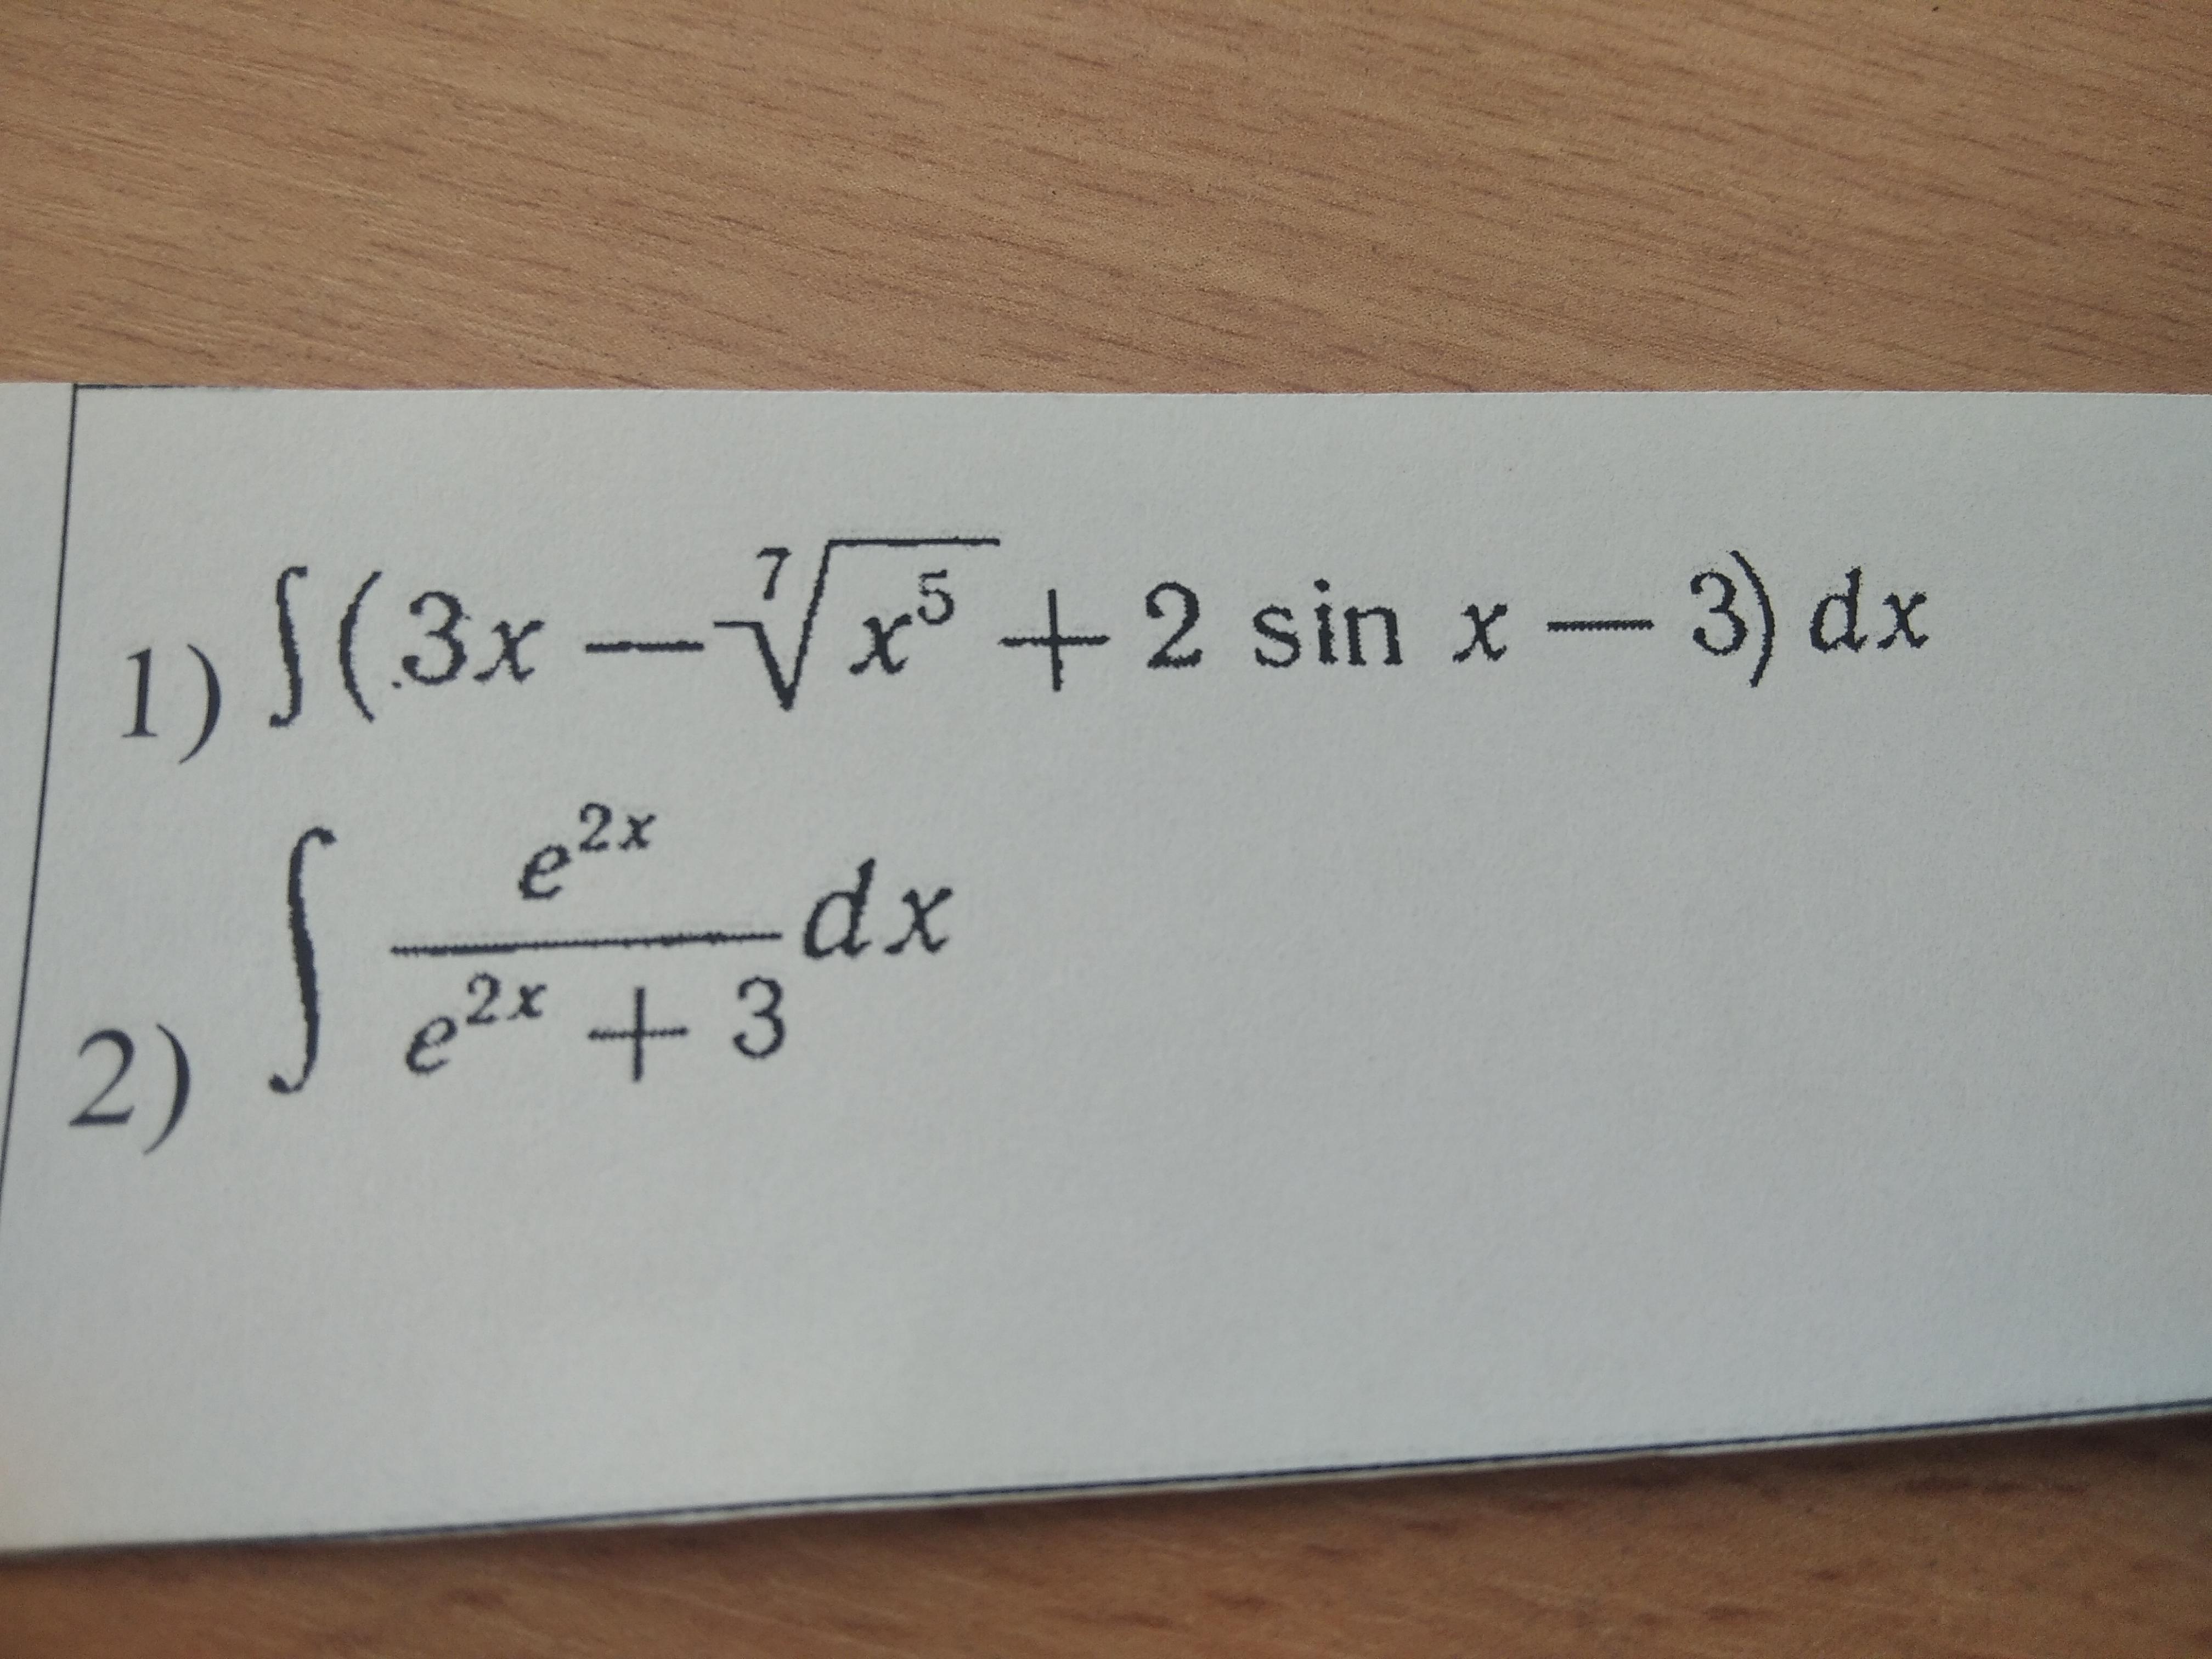 1) ∫(3x − ⁷√x⁵ + 2 sin x − 3) dx
2) ∫ e²ˣ / (e²ˣ + 3) dx